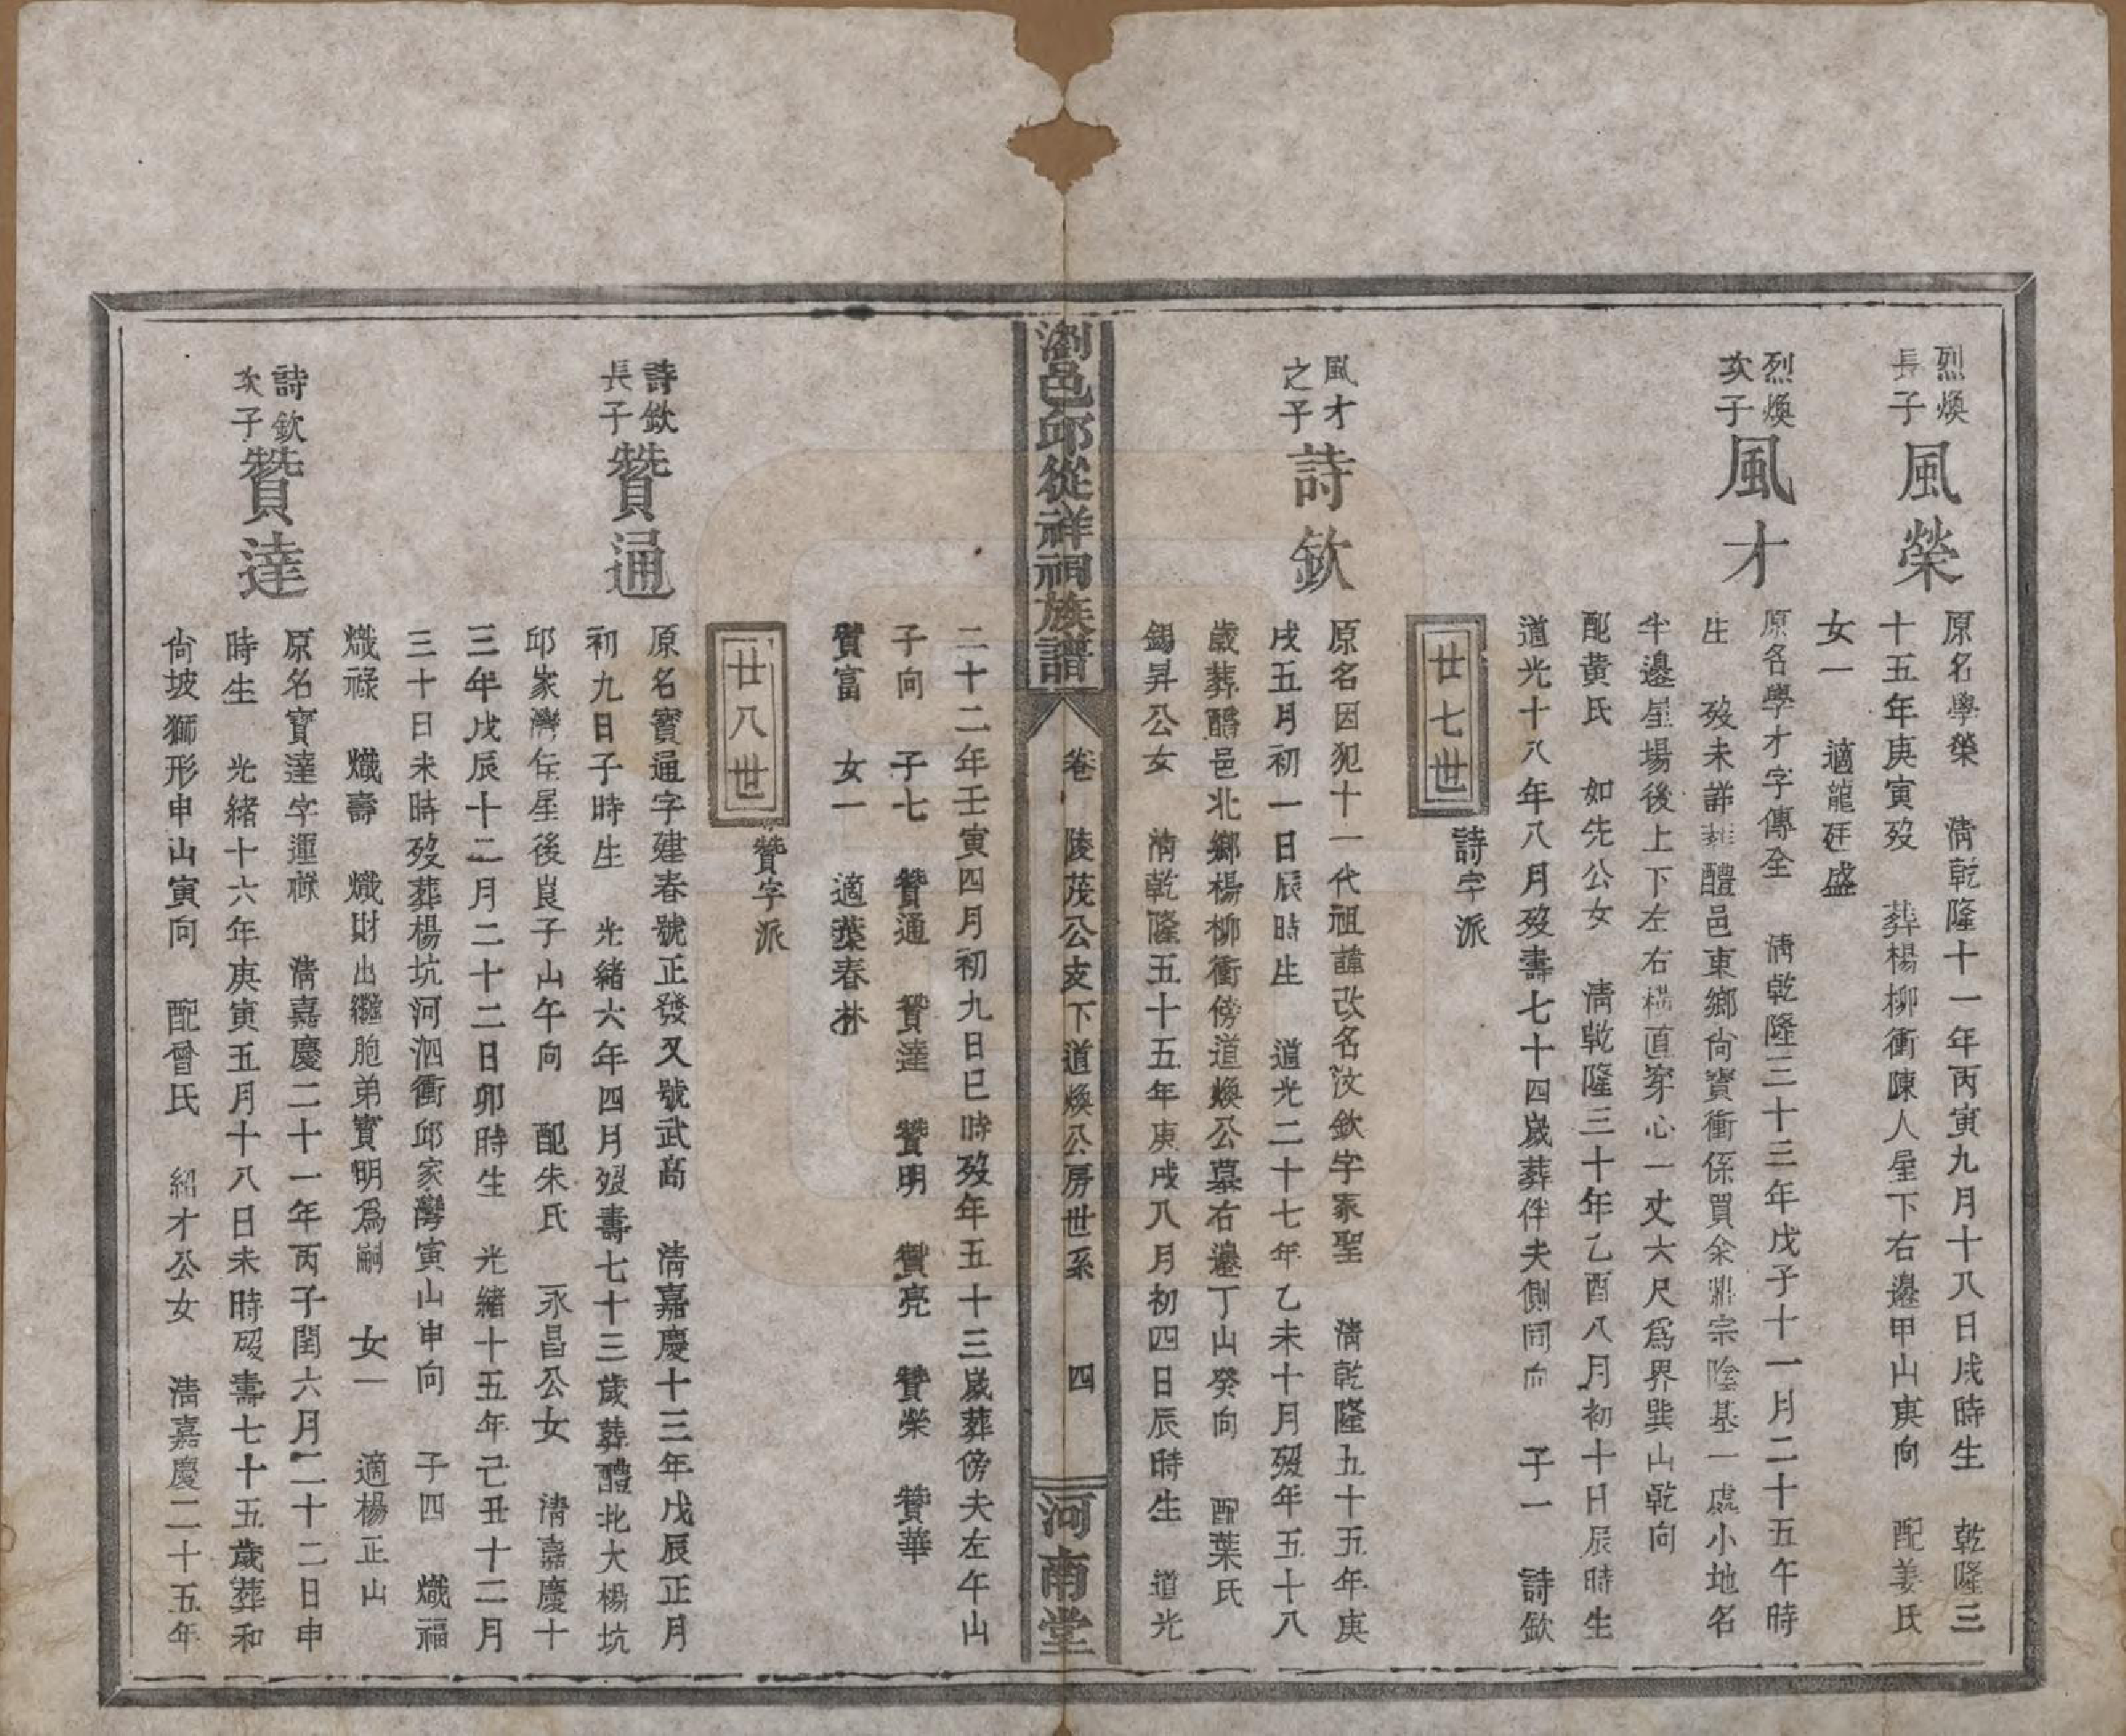 烈煥
長子
風榮
原名學榮　淸乾隆十一年丙寅九月十八日戌時生　乾隆三
十五年庚寅歿　葬楊柳衝陳人屋下右邊甲山庚向　配姜氏
女一　適龍廷盛
烈煥
次子
風才
原名學才字傳全　淸乾隆三十三年戊子十一月二十五午時
生　歿未詳葬醴邑東鄉尙寳衝係買余鼎宗陰基一處小地名
牛邊星場後上下左右橫直穿心一丈六尺爲界巽山乾向
配黄氏　如先公女　淸乾隆三十年乙酉八月初十日辰時生
道光十八年八月歿壽七十四歲葬伴夫側同向　子一　詩欽
廿七世
詩字派
風才
之子
詩欽
原名因犯十一代祖諱改名汝欽字家聖　淸乾隆五十五年庚
戌五月初一日辰時生　道光二十七年乙未十月歿年五十八
歲葬醴邑北鄉楊柳衝傍道煥公墓右邊丁山癸向　配葉氏
錫昇公女　淸乾隆五十五年庚戌八月初四日辰時生　道光
瀏邑邱從祥祠族譜
卷　陵茂公支下道煥公房世系　四
河南堂
二十二年壬寅四月初九日巳時歿年五十三歲葬傍夫左午山
子向　子七　贊通　贊達　贊明　贊亮　贊榮　贊華
贊富　女一　適葉春林
廿八世
贊字派
詩欽
長子
贊通
原名寳通字建春號正發又號武高　淸嘉慶十三年戊辰正月
初九日子時生　光緒六年四月歿壽七十三歲葬醴北大楊坑
邱家灣住屋後艮子山午向　配朱氏　永昌公女　淸嘉慶十
三年戊辰十二月二十二日卯時生　光緒十五年己丑十二月
三十日未時歿葬楊坑河泗衝邱家灣寅山申向　子四　熾福
熾祿　熾壽　熾財出繼胞弟寳明爲嗣　女一　適楊正山
詩欽
次子
贊達
原名寳達字運祿　淸嘉慶二十一年丙子閏六月二十二日申
時生　光緒十六年庚寅五月十八日未時歿壽七十五歲葬和
尙坡獅形申山寅向　配曾氏　紹才公女　淸嘉慶二十五年